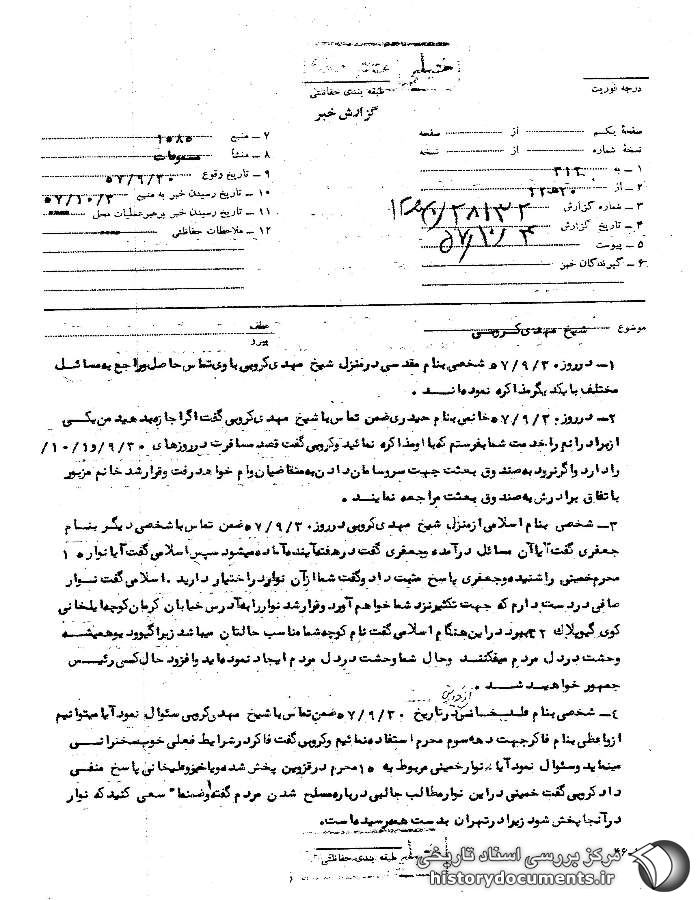 درجه فوریت
طبقه بندی حفاظتی
گزارش خبر
صفحهٔ یکم از صفحه
نسخهٔ شماره از نسخه
۱ ـ به ۳۱۲
۲ ـ از ۲۰ه۲۲
۳ ـ شماره گزارش
۴ ـ تاریخ گزارش
۵ ـ پیوست
۶ ـ گیرندگان خبر
۷ ـ منبع ۱۰۸۵
۸ ـ منشأ مسموعات
۹ ـ تاریخ وقوع ۵۷/۹/۳۰
۱۰ ـ تاریخ رسیدن خبر به منبع ۵۷/۱۰/۳
۱۱ ـ تاریخ رسیدن خبر برهبر عملیات محل
۱۲ ـ ملاحظات حفاظتی
موضوع شیخ مهدی کروبی
عطف
پیرو
۱ـ در روز ۵۷/۹/۳۰ شخصی بنام مقدسی در منزل شیخ مهدی کروبی با وی تماس حاصل و راجع به مسائل
مختلف با یکدیگر مذاکره نموده‌اند .
۲ـ در روز ۵۷/۹/۳۰ خانمی بنام حیدری ضمن تماس با شیخ مهدی کروبی گفت اگر اجازه بدهید من یکی
از برادرانم را خدمت شما بفرستم که با او مذاکره نمائید و کروبی گفت قصد مسافرت در روزهای ۹/۳۰ و ۱۰/۱/
را دارد و اگر نرود به صندوق بعثت جهت سر و سامان دادن به متقاضیان وام خواهد رفت و قرار شد خانم مزبور
باتفاق برادرش به صندوق بعثت مراجعه نمایند .
۳ـ شخصی بنام اسلامی از منزل شیخ مهدی کروبی در روز ۵۷/۹/۳۰ ضمن تماس با شخصی دیگر بنام
جعفری گفت آیا آن مسائل در آمده و جعفری گفت در هفته آینده آماده میشود سپس اسلامی گفت آیا نوار ۱۵
محرم خمینی را شنیده و جعفری پاسخ مثبت داد و گفت شما از آن نوار در اختیار دارید . اسلامی گفت نوار
صافی در دست دارم که جهت تکثیر نزد شما خواهم آورد و قرار شد نوار را به آدرس خیابان کرمان کوچه ایلخانی
کوی گیو پلاک ۳۲ ببرد در این هنگام اسلامی گفت نام کوچه شما مناسب حالتان میباشد زیرا گیو دیو همیشه
وحشت در دل مردم میفکند و حال شما وحشت در دل مردم ایجاد نموده‌اید و افزود حال کسی رئیس
جمهور خواهید شد .
از قزوین
۴ـ شخصی بنام در تاریخ ۵۷/۹/۳۰ ضمن تماس با شیخ مهدی کروبی سئوال نمود آیا میتوانیم
از واعظی بنام فاکر جهت دهه سوم محرم استفاده نمائیم و کروبی گفت فاکر در شرایط فعلی خوب سخنرانی
مینماید و سئوال نمود آیا نوار خمینی مربوط به ۱۵ محرم در قزوین پخش شده و یا خیر و طیخانی پاسخ منفی
داد کروبی گفت خمینی در این نوار مطالب جالبی درباره مسلح شدن مردم گفته و ضمنا" سعی کنید که نوار
در آنجا پخش شود زیرا در تهران بدست همه رسیده است.
طبقه بندی حفاظتی
مرکز بررسی اسناد تاریخی
historydocuments.ir